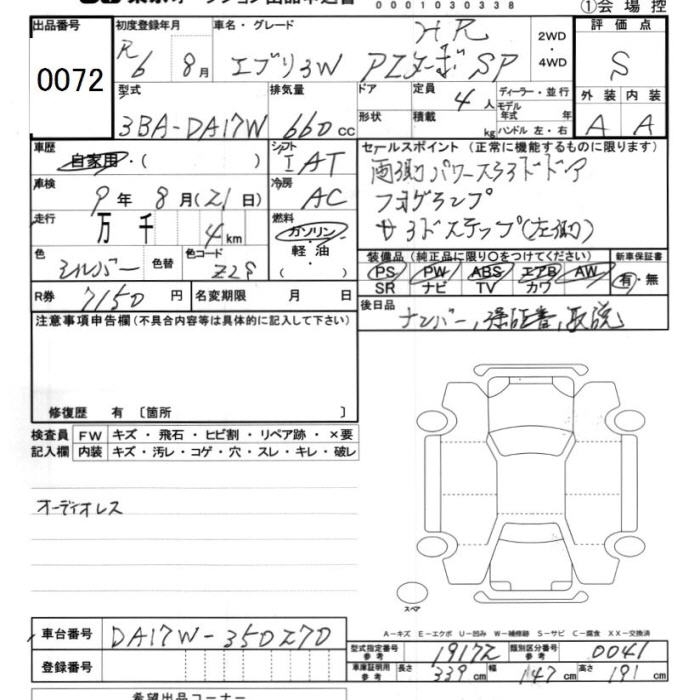 0001030338
①会場控
出品番号 初度登録年月 車名・グレード HR 2WD・4WD 評価点
0072 R6 8月 エブリイW PZターボSP S
型式 排気量 ドア 定員 4人 ディーラー・並行 外装 内装
3BA-DA17W 660cc 形状 積載 kg モデル年式 年 ハンドル 左・右 A A
車歴 自家用・( ) シフト IAT セールスポイント(正常に機能するものに限ります)
車検 9年8月(21日) 冷房 AC 両側パワースライドドア
フォグランプ
走行 万 千 4km 燃料 ガソリン・軽・油・( ) サイドステップ(左側)
色 シルバー 色替 色コード Z2S
装備品(純正品に限り○をつけてください) 新車保証書
PS PW ABS エアB AW 有・無
SR ナビ TV カワ
R券 7150円 名変期限 月 日 後日品 ナンバー,保証書,取説
注意事項申告欄(不具合内容等は具体的に記入して下さい)
修復歴 有 [箇所 ]
検査員記入欄 FW キズ・飛石・ヒビ割・リペア跡・×要
内装 キズ・汚レ・コゲ・穴・スレ・キレ・破レ
オーディオレス
スペア
A-キズ E-エクボ U-凹み W-補修跡 S-サビ C-腐食 XX-交換済
車台番号 DA17W-350270
型式指定番号 参考 19172 類別区分番号 参考 0041
登録番号
車庫証明用 参考 長さ 339cm 幅 147cm 高さ 191cm
希望出品コーナー